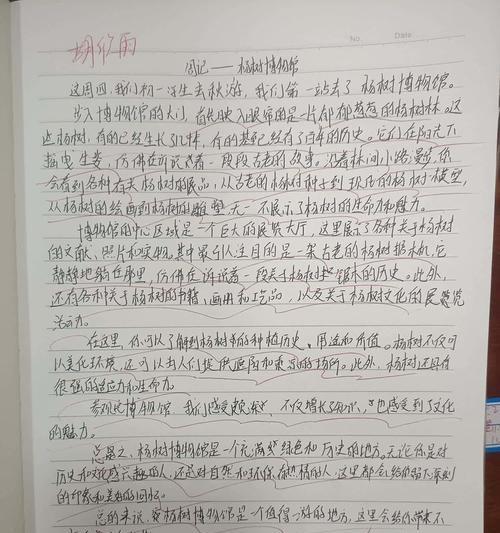 No.
Date
周记——杨树博物馆
这周四,我们初一学生去秋游,我们第一站去了杨树博物馆。
步入博物馆的大门,首先映入眼帘的是一片郁郁葱葱的杨树林。这
些杨树,有的已经生长了几,有的甚已经有了百年的历史。它们在阳光下
摇曳生姿,仿佛在诉说着一段段古老的故事。沿着林间小路漫步,你
会看到各种有关杨树的展品,从古老的杨树种子到现代的杨树模型,
从杨树的绘画到杨树的雕塑,无一不展示了杨树的生命力和魅力。
博物馆的中心区域是一个巨大的展览大厅,这里展示了各种关于杨树
的文献、照片和实物。其中最引人注目的是一架古老的杨树锯木机,它
静静地躺在那里,仿佛在诉说着一段关于杨树锯木的历史。此外,
还有各种关于杨树的书籍、画册和工艺品,以及关于杨树文化的展览
活动。
在这里,你可以了解到杨树的种植历史、用途和价值。杨树不仅可
以美化环境,还可以为人们提供遮阴和的场所。此外,杨树还具有
很强的适应力和生命力。
参观完博物馆,我们感受颇深,不仅增长了知识,也感受到了文化
的魅力。
总之,杨树博物馆是一个充满绿色和历史的地方。无论你是对
历史和文化感兴趣的人,还是对自然和环保有热情的人,这里都会给你留下深刻
的印象和美好的回忆。
总的来说,杨树博物馆是一个值得一游的地方,这里会给你带来不